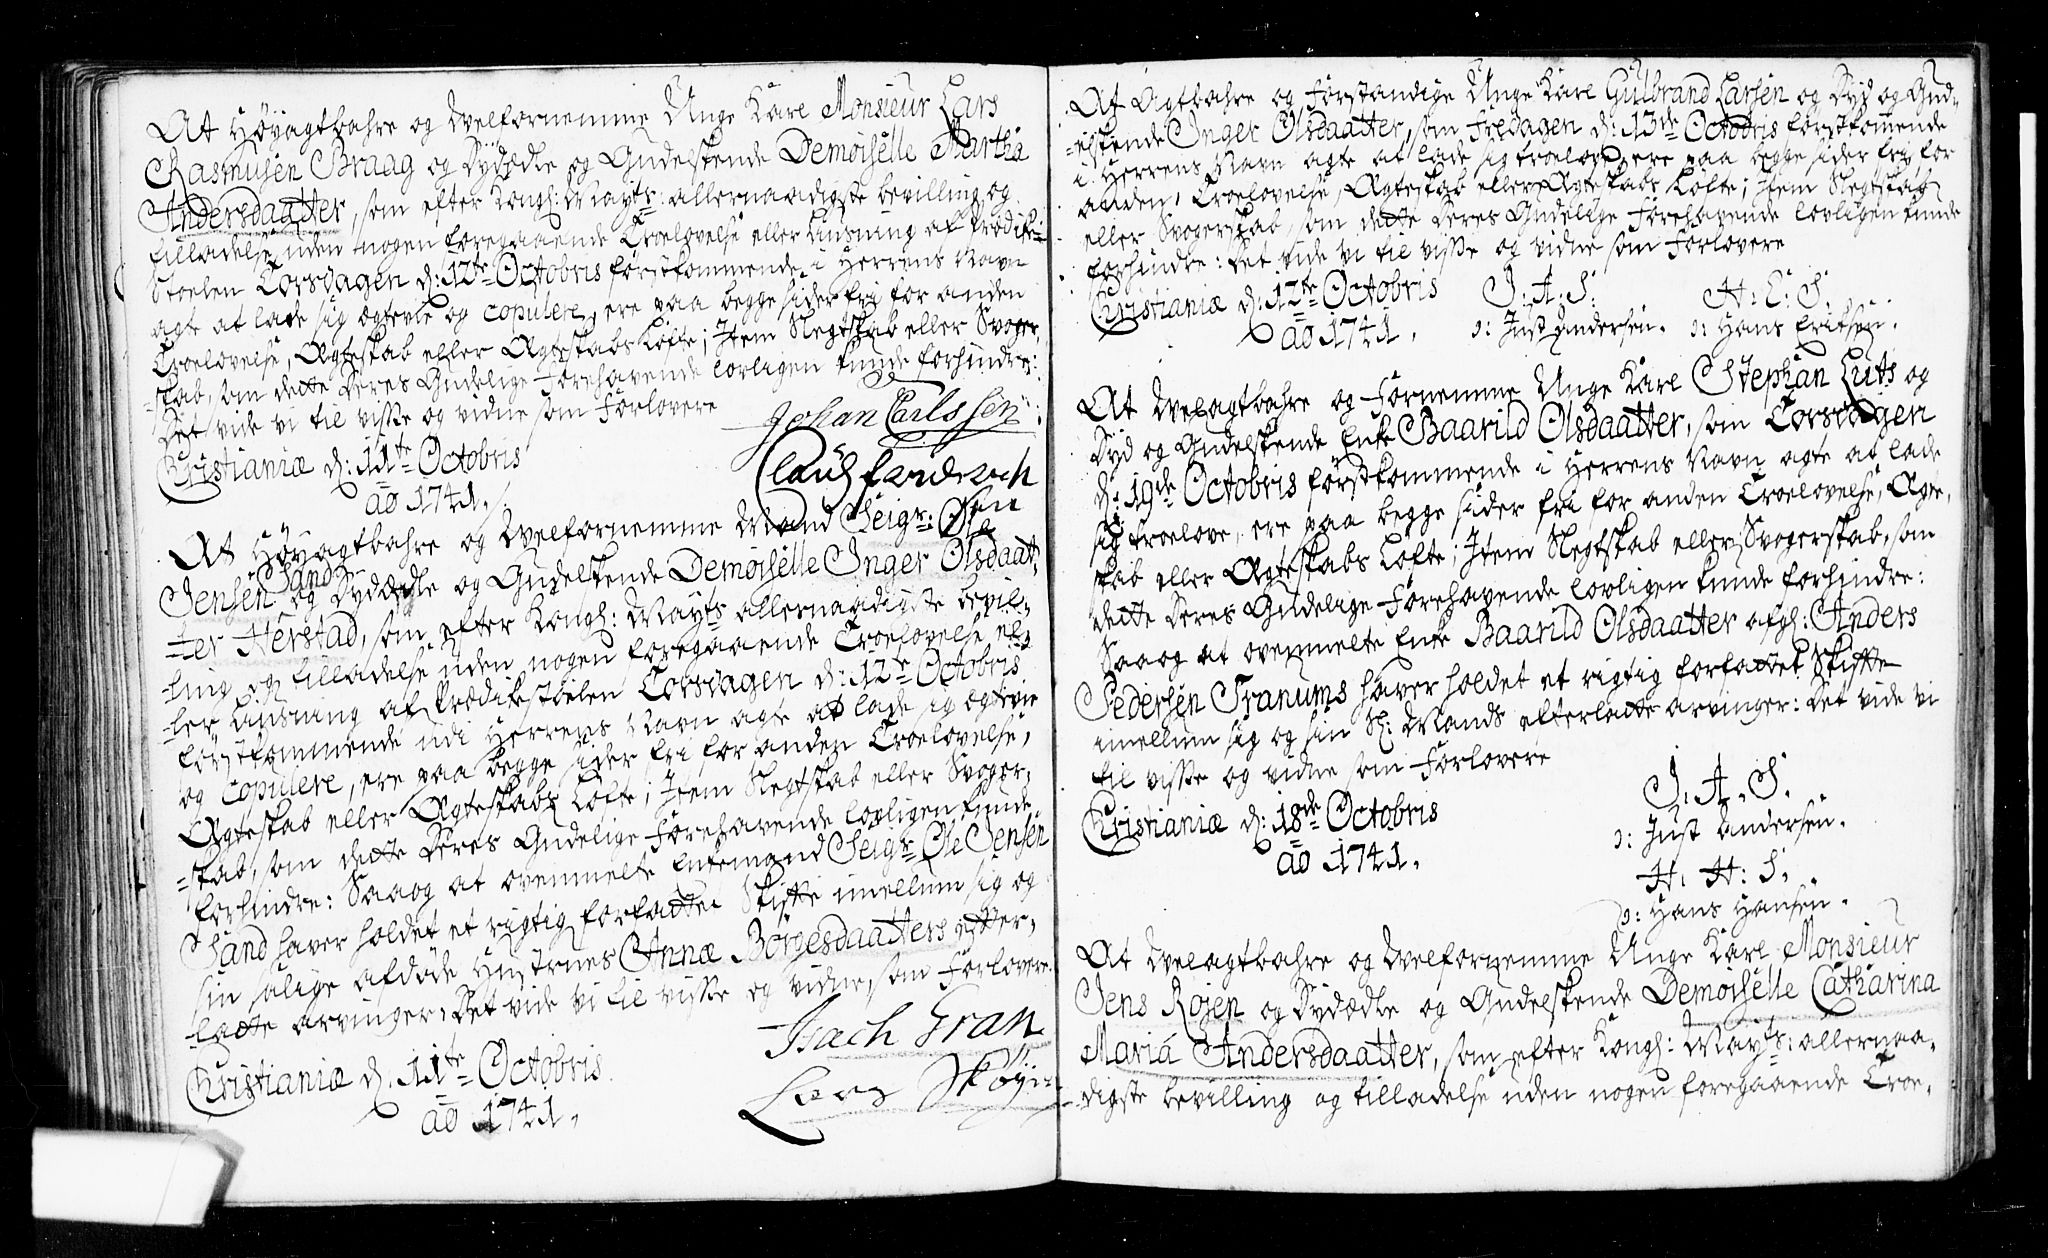 At Høyagtbahre og Velfornemme Unge Karl Monsieur Lars
Rasmusen Braag og Dydædle og Gudelskende Demoiselle Martha
Andersdaatter, som efter Kongl: Mayts: allernaadigste bevilling og
tilladelse uden nogen foregaaende Troelovelse eller Liusning af Prædike-
Stoelen Torsdagen d: 12te Octobris førstkommende i Herrens Navn
agte at lade sig ægtevie og copulere, ere paa begge sider fri for anden
Troelovelse, Ægteskab eller Ægteskabs Løfte; Item Slegtskab eller Svoger-
-skab, som dette Deres Gudelige Forehavende lovligen kunde forhindre:
Det vide vi til visse og vidne som Forlovere
Johan Carlssen
Christianiæ d: 11te Octobris
ao 1741.
At Høyagtbahre og Velfornemme Mand Seigr: Ole
Jensen Sand og Dydædle og Gudelskende Demoiselle Inger Olsdaat-
-ter Herstad, som efter Kongl: Mayts allernaadigste bevil-
-ling og tilladelse uden nogen foregaaende Troelovelse el-
-ler Liusning af Prædikestoelen Torsdagen d: 12te Octobris
førstkommende udi Herrens Navn agte at lade sig ægtevie
og copulere, ere paa begge sider fri for anden Troelovelse,
Ægteskab eller Ægteskabs Løfte; Item Slegtskab eller Svoger-
-skab, som dette Deres Gudelige Forehavende lovligen kunde
forhindre: Saa og at ovenmelte Enkemand Seigr Ole Jensen
Sand haver holdet et rigtig forfattet Skifte imellum sig og
sin salige afdøde Hustrues Annæ Børgesdaatters efter-
-ladte arvinger, Det vide vi til visse og vidne, som Forlovere
Isach Gran
Christianiæ d. 11te Octobris
Lars Skøyen
ao 1741.
At Agtbahre og Forstandige Unge Karl Gulbrand Larsen og Dyd og Gud-
-elskende Inger Olsdaatter, som Fredagen d: 13de Octobris førstkommende
i Herrens Navn agte at lade sig troelove, ere paa begge sider fri for
anden Troelovelse, Ægteskab eller Ægteskabs Løfte; Item Slegtskab
eller Svogerskab, som dette Deres Gudelige Forehavende lovligen kunde
forhindre: Det vide vi til visse og vidne som Forlovere
Christianiæ d: 12te Octobris J: A: S: H: E: S.
ao 1741. ɔ: Just Andersen. ɔ: Hans Eriksen.
At Velagtbahre og Fornemme Unge Karl Stephan Luts og
Dyd og Gudelskende Enke Baarild Olsdaatter, som Torsdagen
d: 19de Octobris førstkommende i Herrens Navn agte at lade
sig troelove, ere paa begge sider fri for anden Troelovelse, Ægte-
skab eller Ægteskabs Løfte; Item Slegtskab eller Svogerskab, som
dette Deres Gudelige Forehavende lovligen kunde forhindre:
Saa og at ovenmelte Enke Baarild Olsdaatter afgl: Anders
Pedersen Tranums haver holdet et rigtig forfattet Skifte
imellum sig og sin Sl: Mands efterladte arvinger: Det vide vi
til visse og vidne som Forlovere
J. A. S.
Christianiæ d: 18de Octobris
ɔ: Just Andersen.
ao 1741.
H. H: S.
ɔ: Hans Hansen.
At Velagtbahre og Velfornemme Unge Karl Monsieur
Jens Rosen og Dydædle og Gudelskende Demoiselle Catharina
Maria Andersdaatter, som efter Kongl: Mayts: allernaa-
-digste bevilling og tilladelse uden nogen foregaaende Troe-